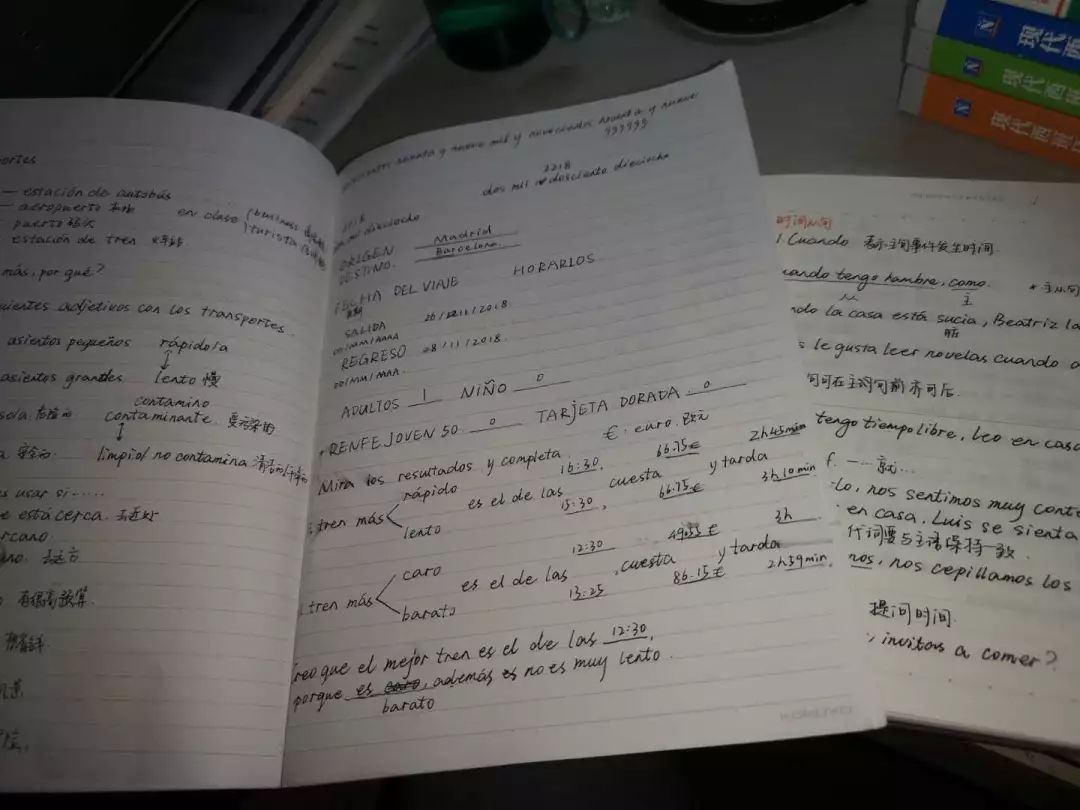 — estación de autobús
— aeropuerto 机场
puerto 码头
estación de tren 火车站
en clase
business
turista
más, por qué?
adjetivos con los transportes
asientos pequeños rápido/a
asientos grandes lento 慢
contamino
contaminante 受污染的
limpio/ no contamina
s usar si ......
e está cerca. 去近处
rcano.
去远方
noventa y nueve mil y novecientos noventa y nueve
999999
2218
dos mil doscientos dieciocho
2018
dieciocho
ORIGEN Madrid
DESTINO. Barcelona.
FECHA DEL VIAJE HORARIOS
SALIDA 2018
DD/MM/AAAA
REGRESO 28/11/2018.
DD/MM/AAAA
ADULTOS 1 NIÑO 0
RENFE JOVEN 50. 0 TARJETA DORADA. 0
€. euro. 欧元
Mira los resultados y completa.
tren más rápido es el de las 16:30, cuesta 66.75€ y tarda 2h45min
lento 15:30, 66.75€ 3h10min
tren más caro es el de las 12:30, cuesta y tarda 3h
barato 13:25 86.15€ 2h59min.
reo que el mejor tren es el de las 12:30,
porque es caro, además es no es muy lento.
barato
现代西
现代西
现代西班
时间从句
1. Cuando 表示主句事件发生时间.
uando tengo hambre, como.
从 主
ndo la casa está sucia, Beatriz la
脏
s le gusta leer novelas cuando
句可在主句前亦可后.
tengo tiempo libre, leo en casa
f. 一 ... 就 ...
lo, nos sentimos muy conte
en casa, Luis se sienta
代词要与主语保持一致.
nos, nos cepillamos los
提问时间.
invitas a comer?